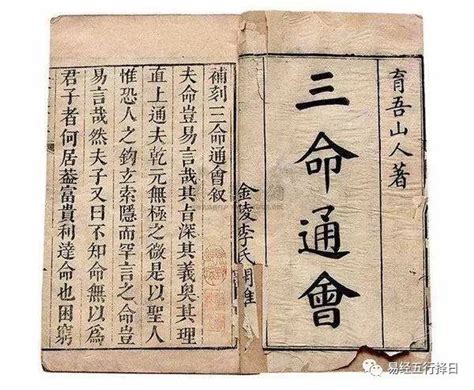 育吾山人著
三命通會
金陵李氏
補刻三命通會叙
夫命豈易言哉其旨深其義奧其理
直上通夫乾元無極之微是以聖人
惟恐人之鉤玄索隱而罕言之命豈
易言哉然夫子又曰不知命無以爲
君子者何居葢富貴利達命也困窮
易经五行择日